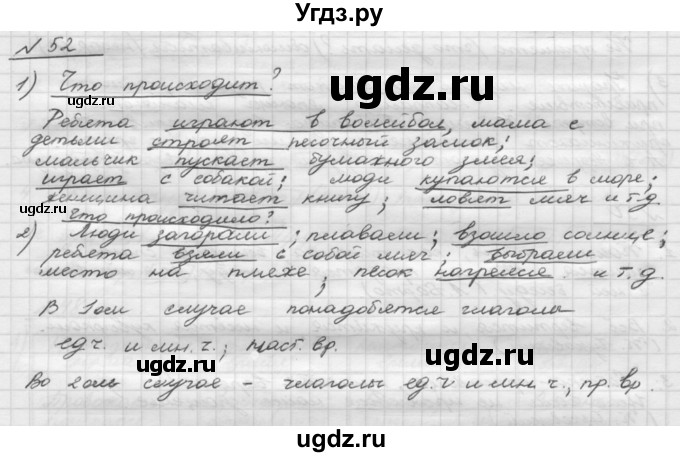 Угдз.ру
N 52
1) Что происходит?
ugdz.ru
Ребята играют в волейбол, мама с
детьми строят песочный замок;
мальчик пускает бумажного змея;
играет с собакой; люди купаются в море;
женщина читает книгу; ловят мяч и т.д.
Что происходило?
2) Люди загорали; плавали; взошло солнце;
ребята взяли с собой мяч; выбрали
место на пляже, песок нагрелся и т.д.
ugdz.ru
ugdz.ru
ugdz.ru
В 1ом случае понадобятся глаголы
ед.ч. и мн.ч.; наст.вр.
ugdz.ru
ugdz.ru
Во 2ом случае – глаголы ед.ч и мн.ч., пр.вр.
ugdz.ru